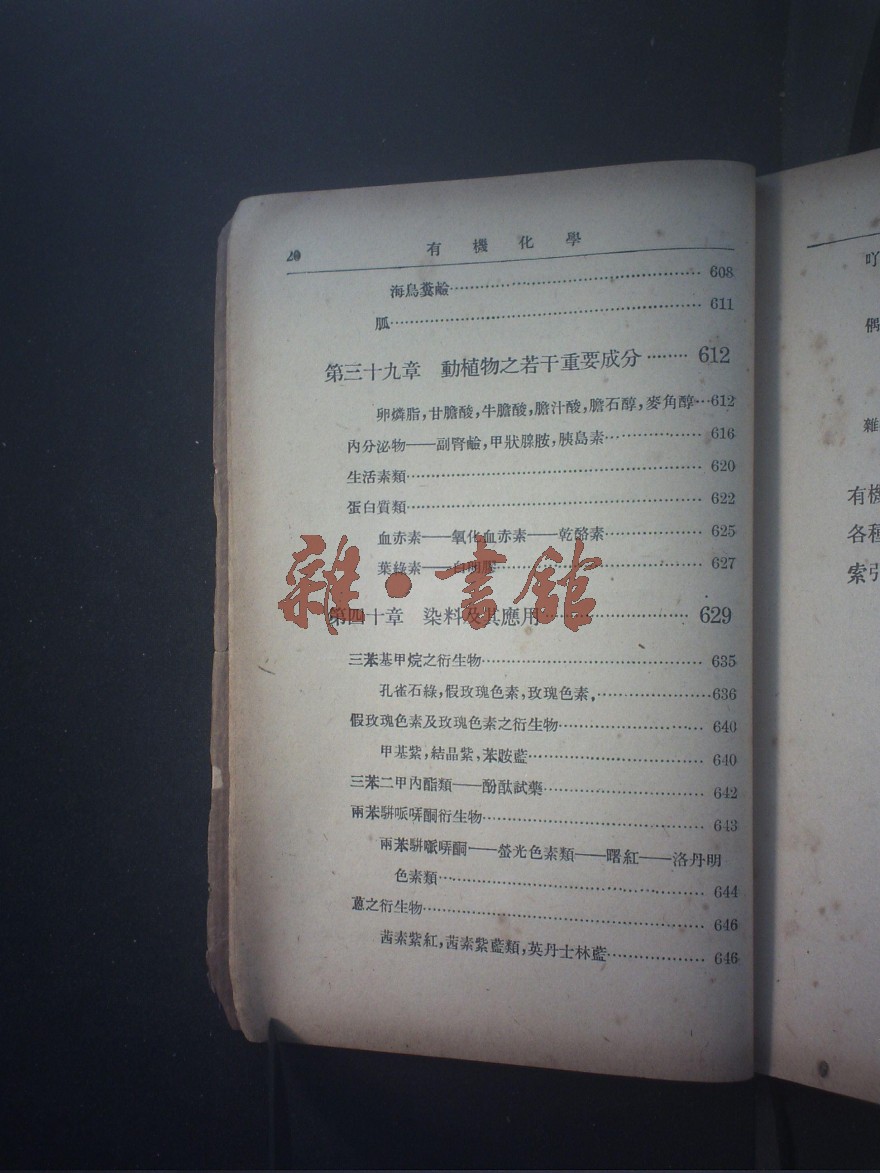 20 有機化學
海鳥糞鹼 608
胍 611
第三十九章 動植物之若干重要成分 612
卵燐脂,甘膽酸,牛膽酸,膽汁酸,膽石醇,麥角醇 612
內分泌物——副腎鹼,甲狀腺胺,胰島素 616
生活素類 620
蛋白質類 622
血赤素——氧化血赤素——乾酪素 625
葉綠素——白明膠 627
雜·書館
第四十章 染料及其應用 629
三苯基甲烷之衍生物 635
孔雀石綠,假玫瑰色素,玫瑰色素, 636
假玫瑰色素及玫瑰色素之衍生物 640
甲基紫,結晶紫,苯胺藍 640
三苯二甲內酯類——酚酞試藥 642
兩苯駢哌哢酮衍生物 643
兩苯駢哌哢酮——螢光色素類——曙紅——洛丹明
色素類 644
蒽之衍生物 646
茜素紫紅,茜素紫藍類,英丹士林藍 646
吖
偶
雜
有機
各種
索引